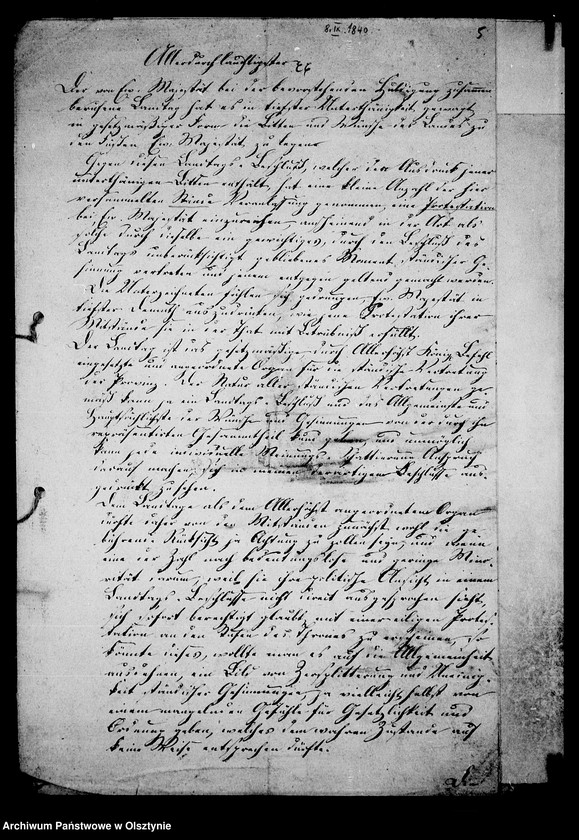 8. IX. 1840
5
Allerdurchlauchtigster
Der von Ew. Majestät bei der bevorstehenden Huldigung zusammen
berufene Landtag hat es in tiefster Unterthänigkeit gewagt,
in gesetzmäßiger Form die Bitten und Wünsche des Landes zu
den Füßen Ew. Majestät zu legen.
Gegen diesen Landtags-Beschluß, welcher den Ausdruck jener
unterthänigen Bitten enthält, hat eine kleine Anzahl der hier
versammelten Stände Veranlassung genommen, eine Protestation
bei Ew. Majestät einzureichen, anscheinend in der Art als
solche durch dieselbe ein gewichtiges, durch den Beschluß des
Landtags unberücksichtigt gebliebenes Moment ständischer Ge-
sinnung vertreten und jenem entgegen geltend gemacht werden.
Die Unterzeichneten fühlen sich gedrungen, Ew. Majestät in
tiefster Demuth auszudrücken, wie jene Protestation ihrer
Mitstände sie in der That mit Betrübniß erfüllt.
Der Landtag ist das gesetzmäßige durch Allerhöchst Königl. Befehl
eingesetzte und angeordnete Organ für die ständische Vertretung
der Provinz. Der Natur aller ständischen Vertretungen ge-
mäß kann ja ein Landtags-Beschluß nur das Allgemeinste und
Hauptsächlichste der Wünsche und Gesinnungen von der durch ihn
repräsentirten Gesammtheit kund geben, und unmöglich
kann jede individuelle Meinungs-Anspruch
darauf machen, sich in einem derartigen Beschlusse aus-
gedrückt zu sehen.
Dem Landtage als dem Allerhöchst angeordneten Organ
dürfte daher von den Mitständen zunächst wohl die ge-
bührende Rücksicht ja Achtung zu zollen seyn, und wenn
eine der Zahl nach bedeutungslose und geringe Mino-
rität darum, weil sie ihre politische Ansicht in einem
Landtags-Beschlusse nicht breit ausgesprochen sieht,
sich sofort berechtigt glaubt, mit einer eiligen Protes-
tation an den Stufen des Thrones zu erscheinen, so
könnte dieses, wollte man es auf die Allgemeinheit
ausdehnen, ein Bild von Zersplitterung und Uneinig-
keit ständischer Gesinnungen, ja vielleicht selbst von
einem mangelnden Gefühle für Gesetzlichkeit und
Ordnung geben, welches dem wahren Zustande auf
keine Weise entsprechen dürfte.
Archiwum Państwowe w Olsztynie